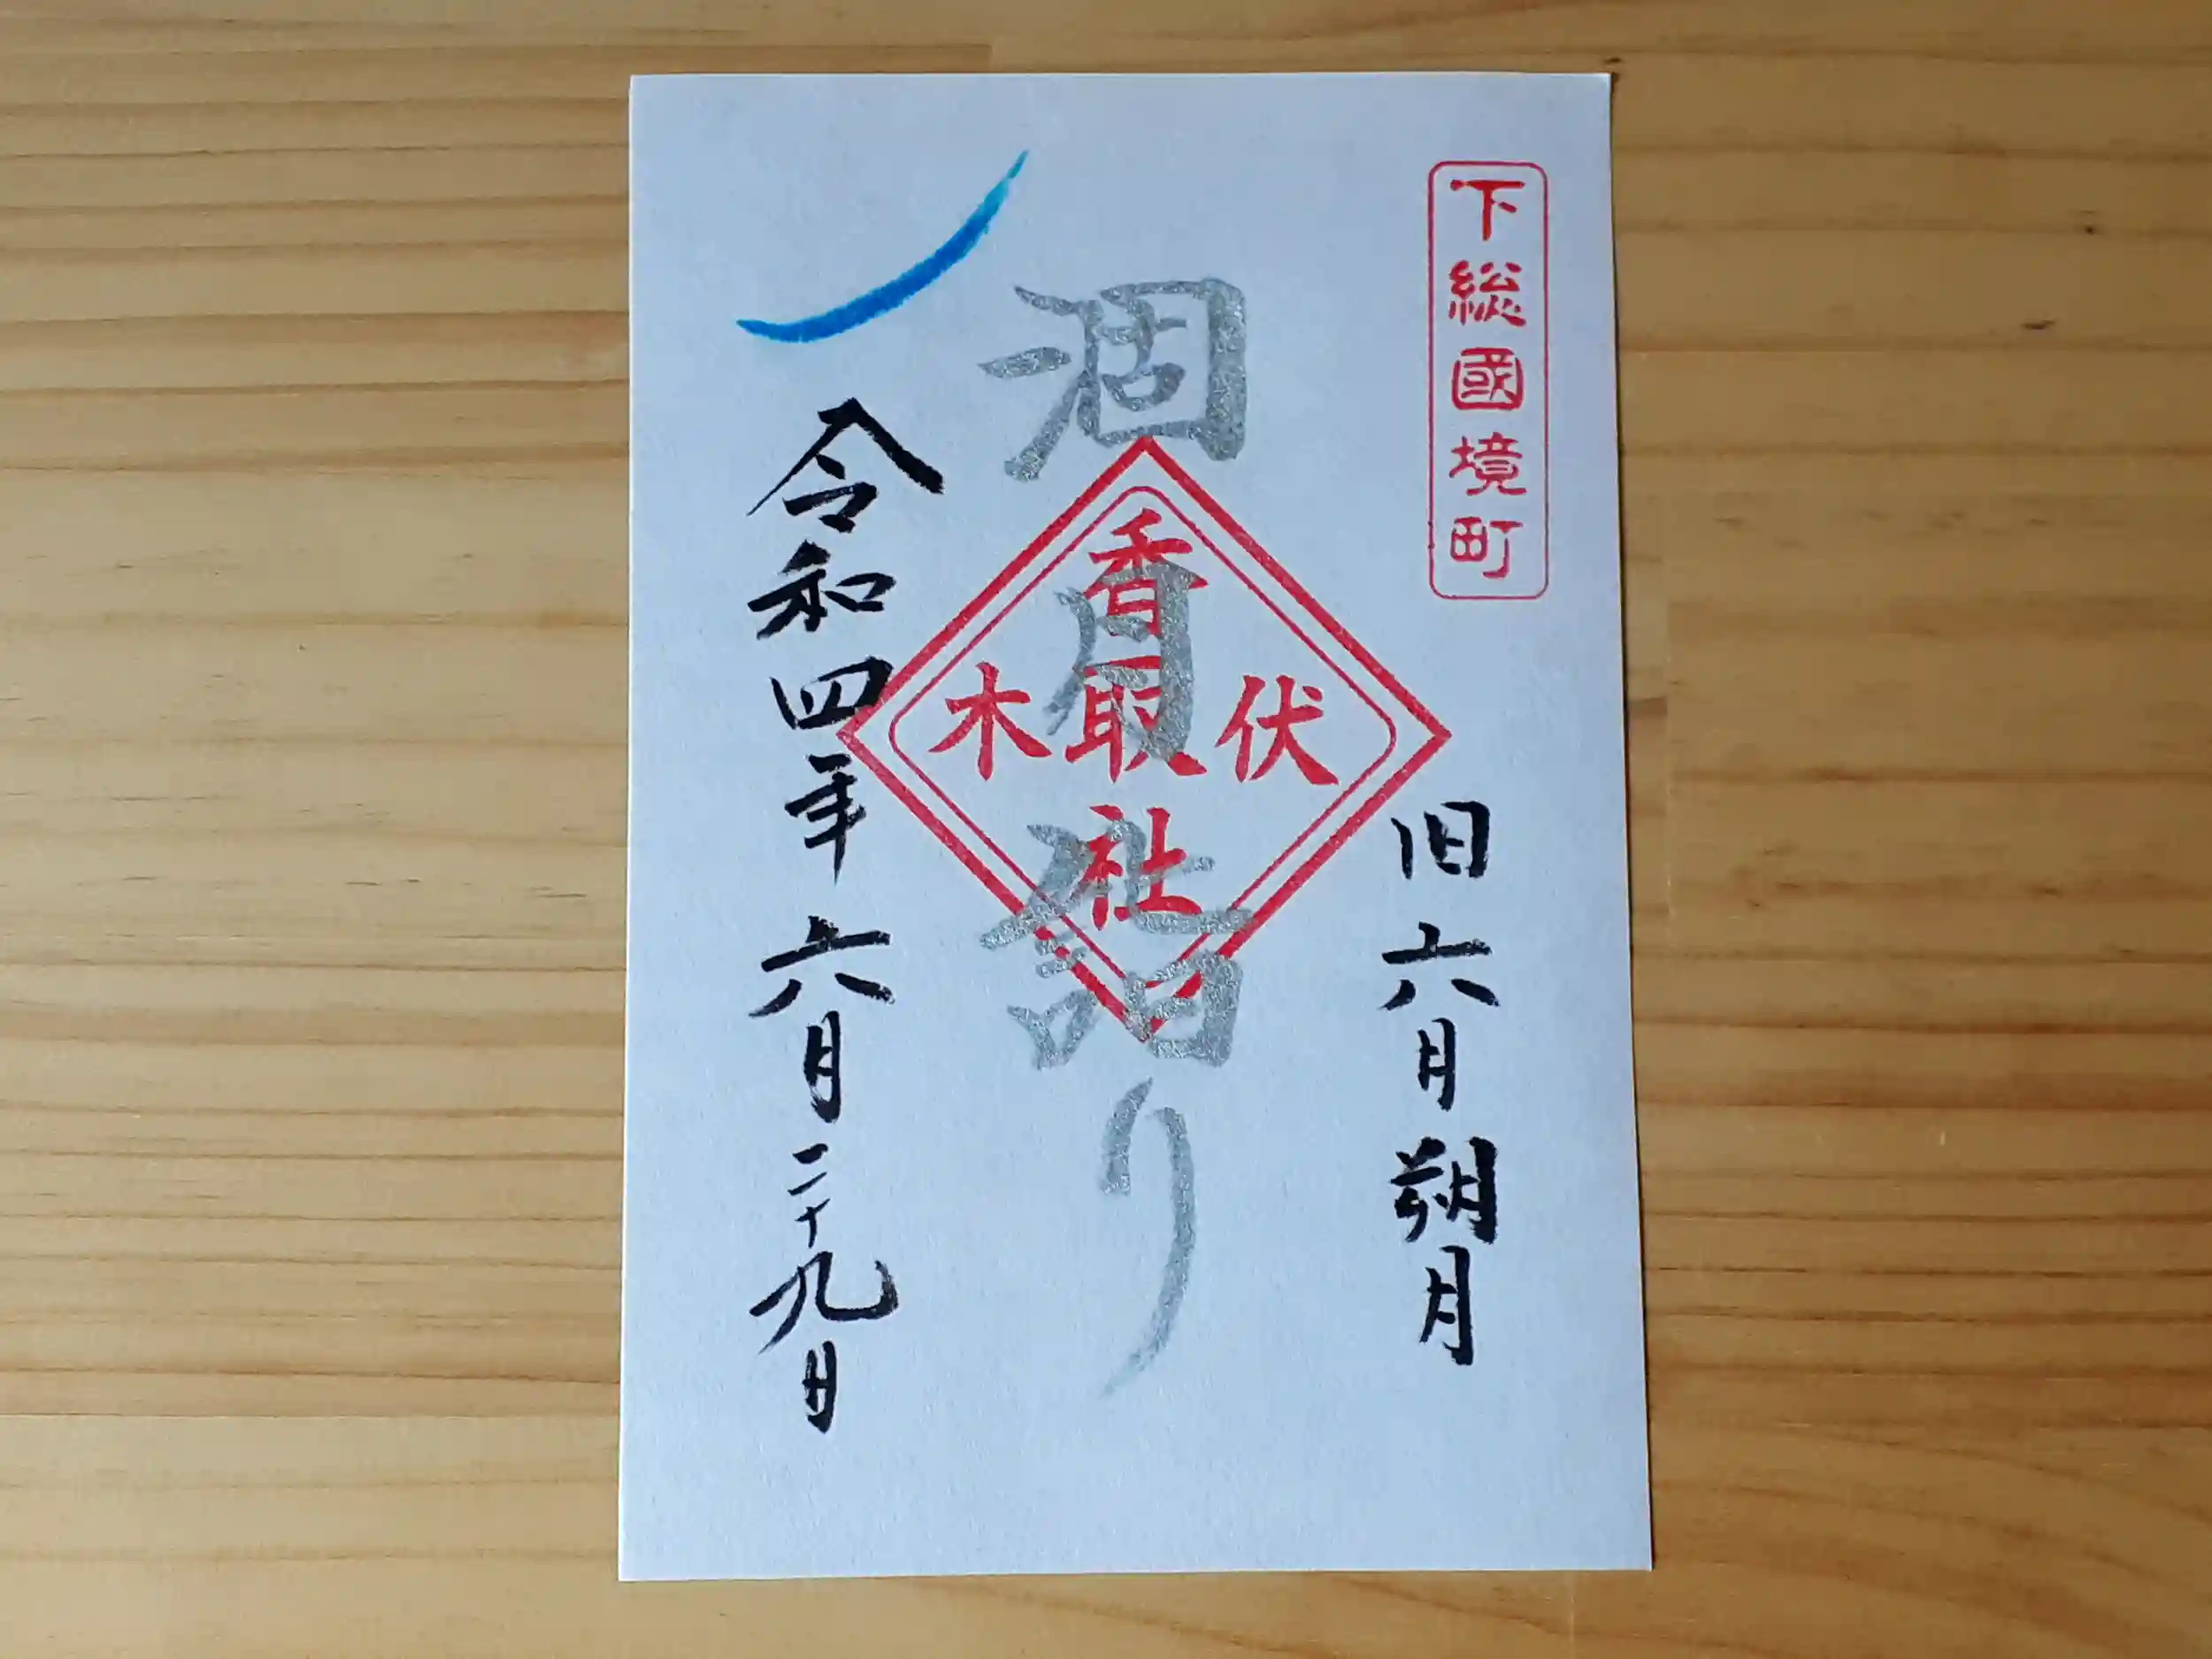 下総國境町
旧六月朔月
涸月詣り
伏木
香取社
令和四年六月二十九日